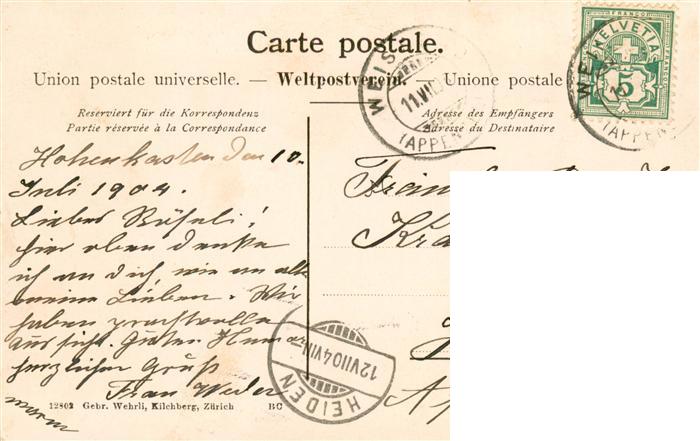 Carte postale.
Union postale universelle. — Weltpostverein. — Unione postale
Reserviert für die Korrespondenz
Partie réservée à la Correspondance
Adresse des Empfängers
Adresse du Destinataire
FRANCO
HELVETIA
5
WEIS
11.VII
(APPEN
WE
(APPEN
Hohenkasten den 10.
Juli 1904.
Liebes Röseli!
hier oben denke
ich an dich, wie an alle
meine Lieben. Wir
haben prachtvolle
Aussicht. Guten Humor
herzlicher Gruß
Frau Weder
Kra
Ap
HEIDEN
12.VII.04.VIII
12802 Gebr. Wehrli, Kilchberg, Zürich